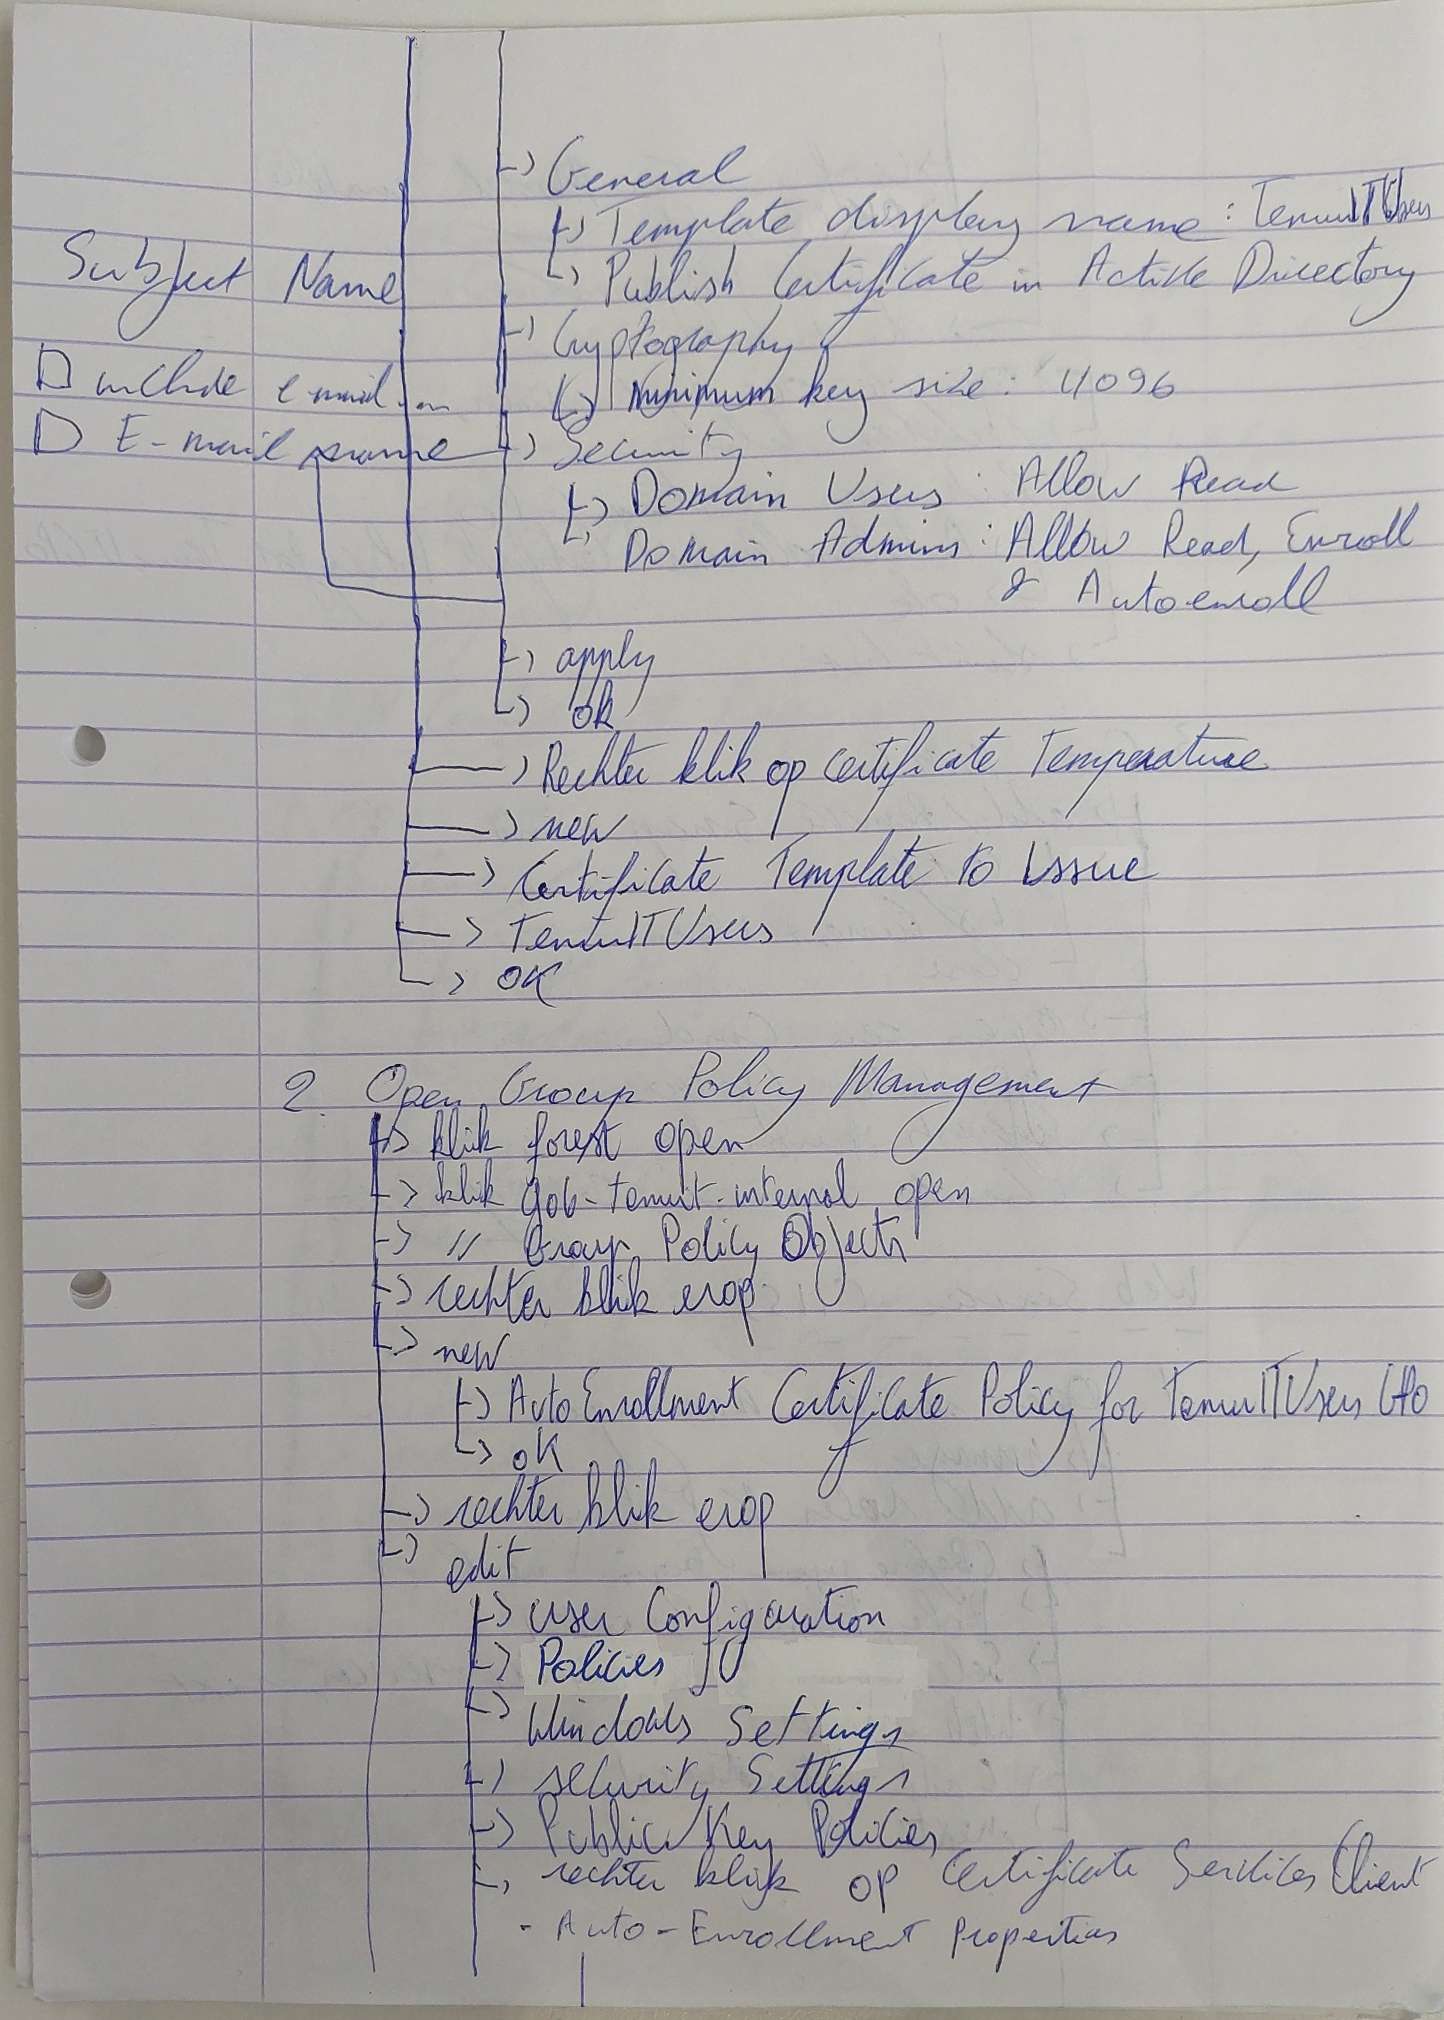 General
Template display name: TenuitTUsers
Publish Certificate in Active Directory
Cryptography
Minimum key size: 4096
Security
Domain Users: Allow Read
Domain Admins: Allow Read, Enroll
& Autoenroll
Subject Name
include e-mail
E-mail name
apply
ok
Rechter klik op certificate Temperature
new
Certificate Template to Issue
TenuITUsers
OK
2. Open Group Policy Management
klik forest open
klik open
" Group Policy Objects
rechter klik erop
new
Auto Enrollment Certificate Policy for TenuITUsers
OK
rechter klik erop
edit
user Configuration
Policies
Windows Settings
security Settings
Public Key Policies
rechter klik op Certificate Services Client
- Auto-Enrollment Properties